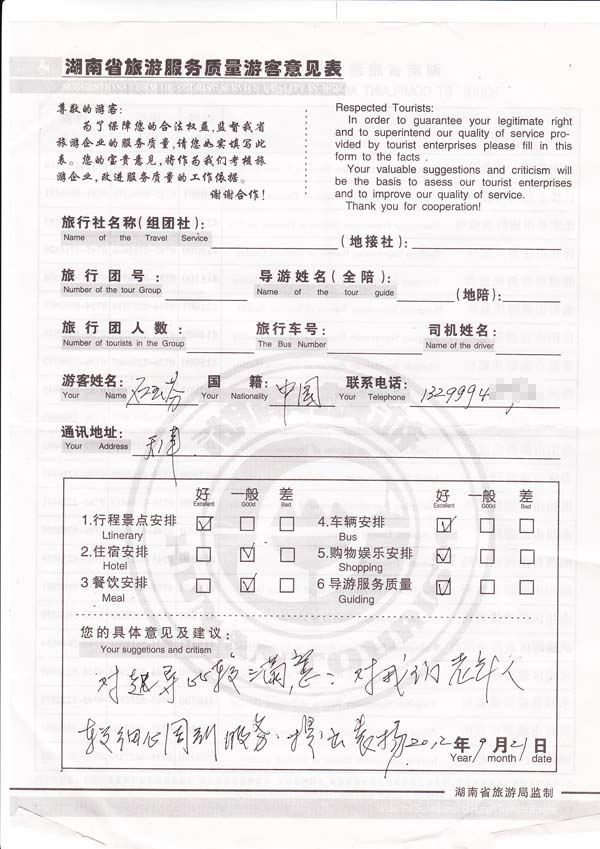 湖南省旅游服务质量游客意见表
尊敬的游客:
为了保障您的合法权益,监督我省
旅游企业的服务质量,请您如实填写此
表。您的宝贵意见,将作为我们考核旅
游企业,改进服务质量的工作依据。
谢谢合作!
Respected Tourists:
In order to guarantee your legitimate right
and to superintend our quality of service pro-
vided by tourist enterprises please fill in this
form to the facts .
Your valuable suggestions and criticism will
be the basis to asess our tourist enterprises
and to improve our quality of service.
Thank you for cooperation!
旅行社名称(组团社): (地接社):
Name of the Travel Service
旅行团号: 导游姓名(全陪): (地陪):
Number of the tour Group Name of the tour guide
旅行团人数: 旅行车号: 司机姓名:
Number of tourists in the Group The Bus Number Name of the driver
游客姓名: 国籍: 中国 联系电话: 1329994
Your Name Your Nationality Your Telephone
通讯地址: 天津
Your Address
好 一般 差 好 一般 差
Excellent Good Bad Excellent Good Bad
1.行程景点安排 4.车辆安排
Ltinerary Bus
2.住宿安排 5.购物娱乐安排
Hotel Shopping
3 餐饮安排 6 导游服务质量
Meal Guiding
您的具体意见及建议:
Your suggetions and critism
对赵导比较满意: 对我们老年人
较细心周到服务. 提出表扬 2012年9月21日
Year/ month/ date
湖南省旅游局监制